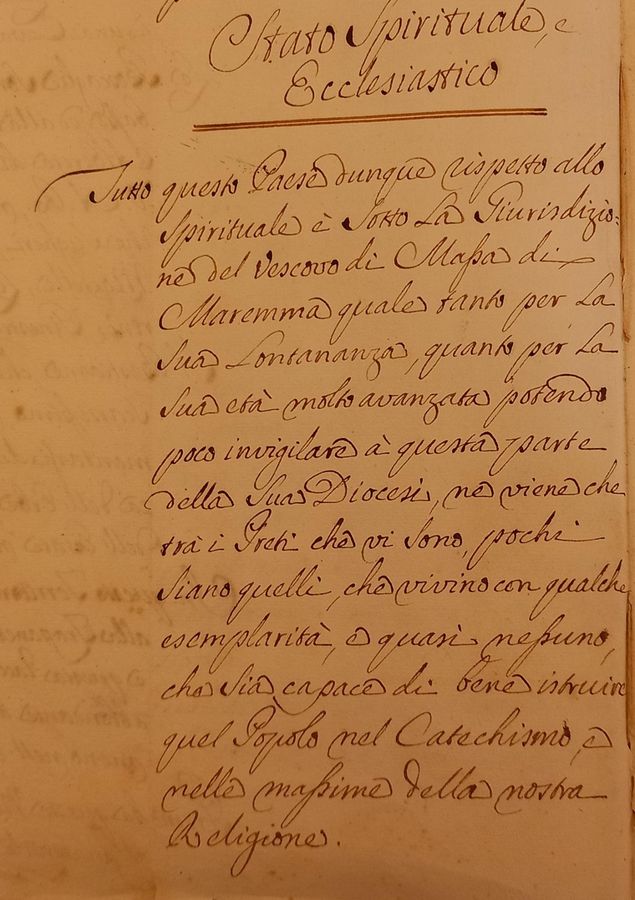 Stato Spirituale, e
Ecclesiastico
Tutto questo Paese dunque rispetto allo
Spirituale è Sotto La Giurisdizio:
ne del Vescovo di Massa di
Maremma quale tanto per La
Sua Lontananza, quanto per La
Sua età molto avanzata potendo
poco invigilare à questa parte
della Sua Diocesi, ne viene che
trà i Preti che vi Sono, pochi
Siano quelli, che vivino con qualche
esemplarità, e quasi nessuno,
che Sia capace di bene istruire
quel Popolo nel Catechismo, e
nelle massime della nostra
Religione.